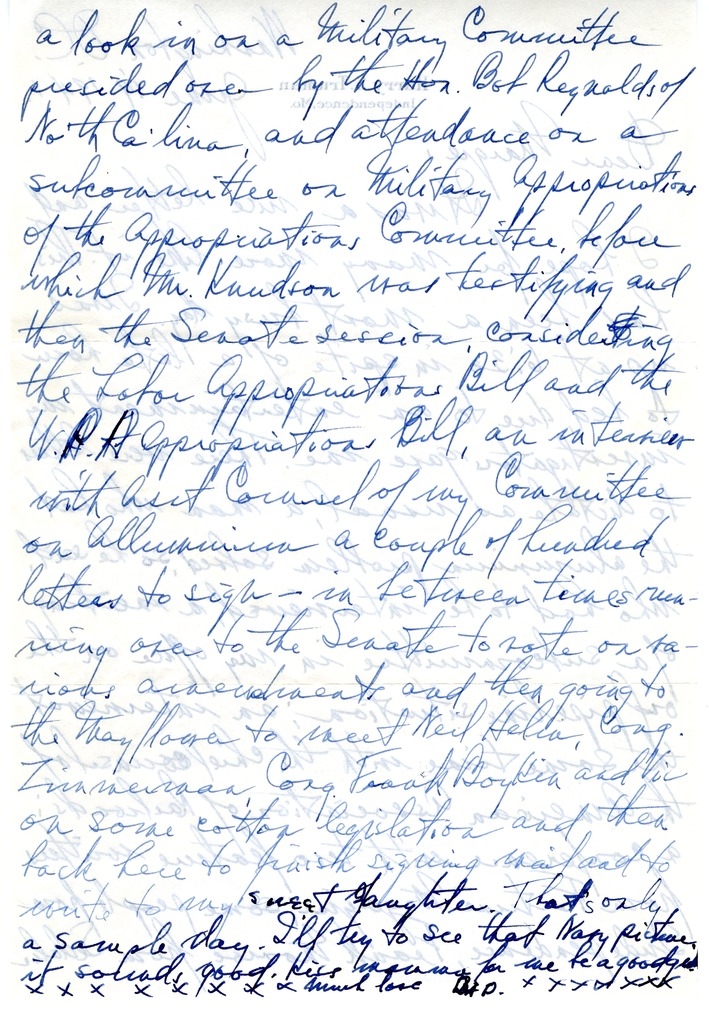 a look in on a Military Committee
presided over by the Hon. Bob Reynolds of
North Ca'lina, and attendance on a
subcommittee on Military Appropriations
of the Appropriations Committee, before
which Mr. Knudson was testifying and
then the Senate session, considering
the Labor Appropriations Bill and the
W.P.A Appropriations Bill, an interview
with Asst Counsel of my Committee
on Allumninum a couple of hundred
letters to sign – in between times run-
ning over to the Senate to vote on va-
rious amendments and then going to
the Mayflower to meet Neil Helm, Cong.
Zimmerman, Cong. Frank Boykin and Vic
on some cotton legislation and then
back here to finish signing mail and to
write to my sweet daughter. That's only
a sample day. I'll try to see that Navy picture,
it sounds good. Kiss mamma for me be a good girl
x x x x x x x x x much love Dad. x x x x x x x x